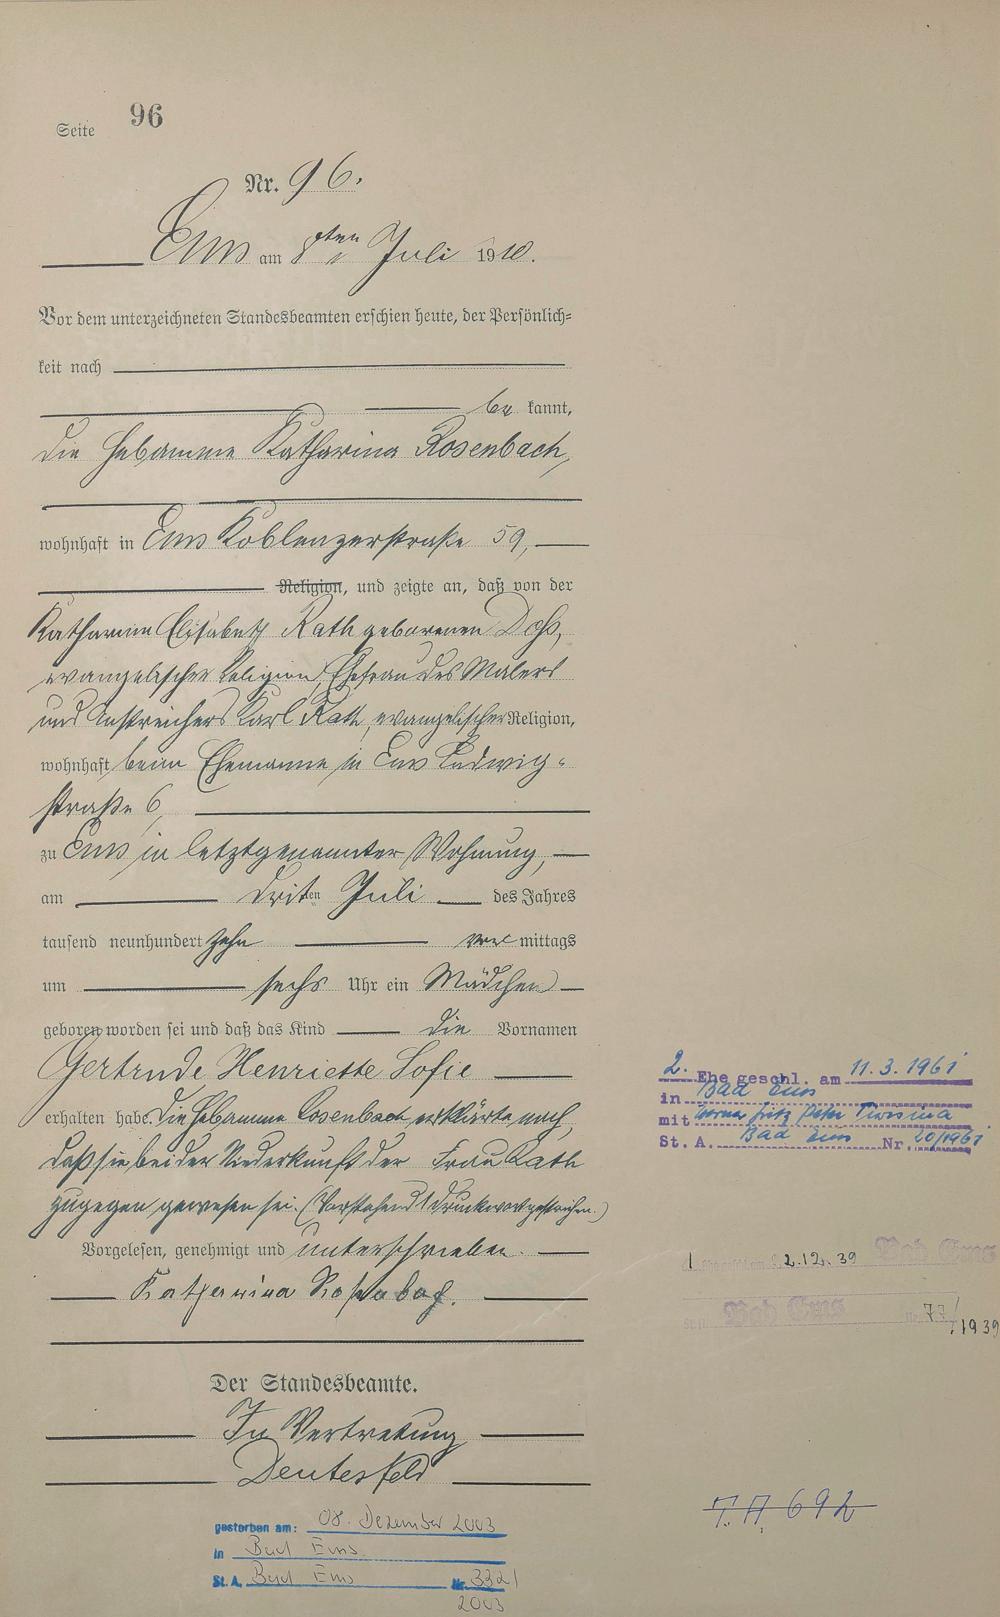 Seite 96
Nr. 96.
Ems am 8ten Juli 1910.
Vor dem unterzeichneten Standesbeamten erschien heute, der Persönlich=
keit nach
be kannt,
die Hebamme Katharina Rosenbach,
wohnhaft in Ems Koblenzerstraße 59,
Religion, und zeigte an, daß von der
Katharina Elisabeth Rath geborenen Doß,
evangelischer Religion, Ehefrau des Malers
und Anstreichers Karl Rath, evangelischer Religion,
wohnhaft beim Ehemanne in Ems Ludwig=
straße 6,
zu Ems in letztgenannter Wohnung,
am driten Juli des Jahres
tausend neunhundert zehn vor mittags
um sechs Uhr ein Mädchen
geboren worden sei und daß das Kind die Vornamen
Gertrude Henriette Sofie
erhalten habe. Die Hebamme Rosenbach erklärte noch,
daß sie bei der Niederkunft der Frau Rath
zugegen gewesen sei. (Vorstehend 1 Druckwort gestrichen.)
Vorgelesen, genehmigt und unterschrieben.
Katharina Rosenbach.
Der Standesbeamte.
In Vertretung
Deutesfeld
gestorben am: 08. Dezember 2003
in Bad Ems
St. A. Bad Ems Nr. 332/
2003
2. Ehe geschl. am 11.3.1961
in Bad Ems
mit Werner Fritz Peter
St. A. Bad Ems Nr. 20/1961
1 2.12.39 Bad Ems
Bad Ems Nr. 77/
1939
T.A. 692